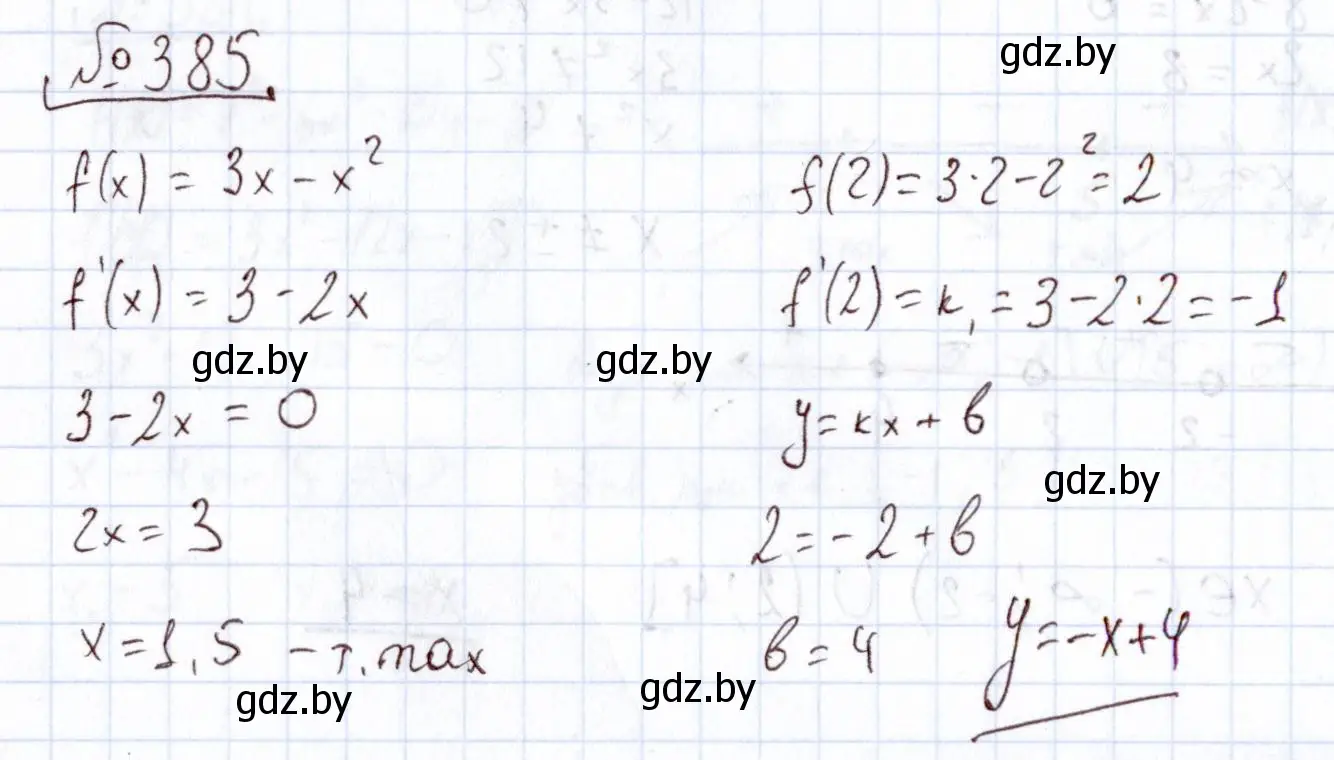 № 385.
gdz.by
f(x) = 3x - x²
f'(x) = 3 - 2x
gdz.by
3 - 2x = 0
2x = 3
x = 1,5 - т. max
gdz.by
f(2) = 3·2 - 2² = 2
f'(2) = k, = 3 - 2·2 = -1
gdz.by
y = kx + b
gdz.by
2 = -2 + b
b = 4
y = -x + 4
gdz.by